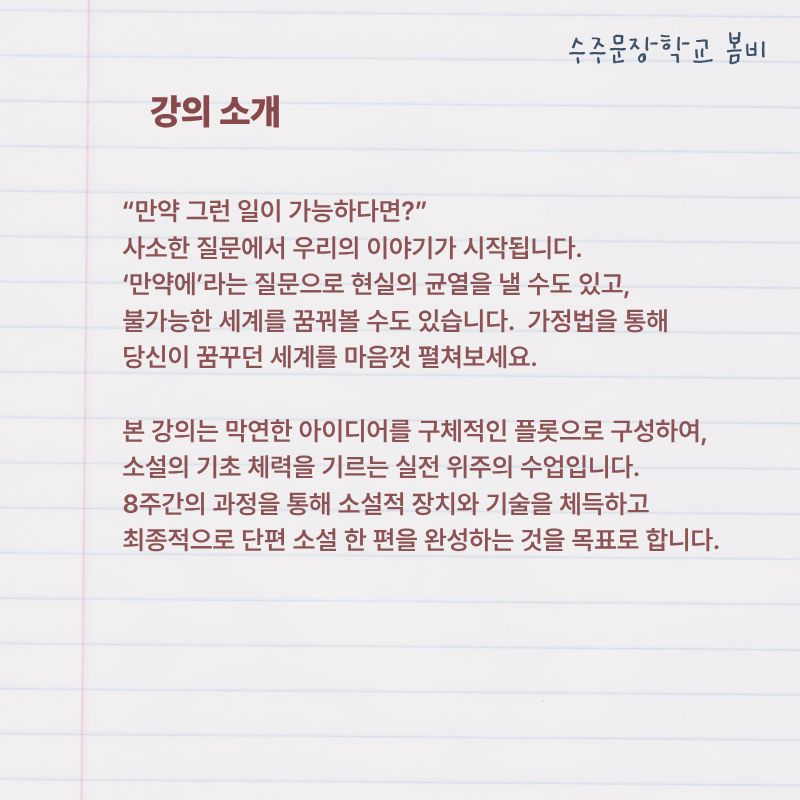 수주문장학교 봄비
강의 소개
“만약 그런 일이 가능하다면?”
사소한 질문에서 우리의 이야기가 시작됩니다.
‘만약에’라는 질문으로 현실의 균열을 낼 수도 있고,
불가능한 세계를 꿈꿔볼 수도 있습니다.  가정법을 통해
당신이 꿈꾸던 세계를 마음껏 펼쳐보세요.
본 강의는 막연한 아이디어를 구체적인 플롯으로 구성하여,
소설의 기초 체력을 기르는 실전 위주의 수업입니다.
8주간의 과정을 통해 소설적 장치와 기술을 체득하고
최종적으로 단편 소설 한 편을 완성하는 것을 목표로 합니다.